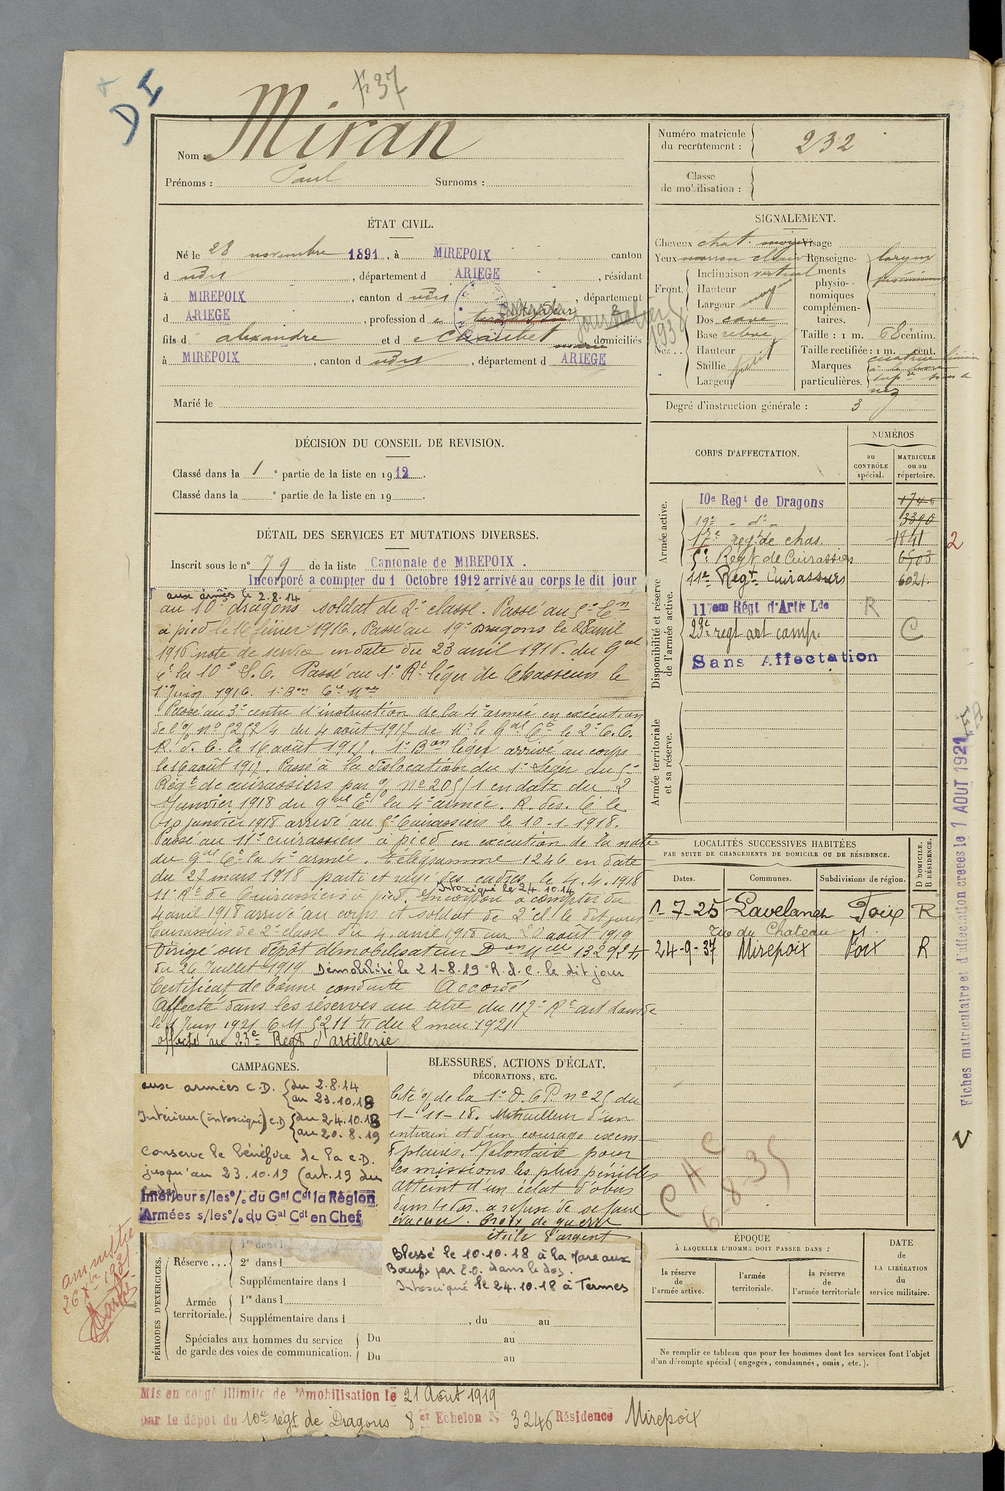 737
D I
Nom : Miran
Prénoms : Paul Surnoms :
Numéro matricule du recrutement : 232
Classe de mobilisation :
ÉTAT CIVIL.
Né le 28 novembre 1891, à MIREPOIX canton
d udit, département d ARIEGE, résidant
à MIREPOIX, canton d udit, département
d ARIEGE, profession d
fils d alexandre et d Chaubet marie domiciliés
à MIREPOIX, canton d udit, département d ARIEGE
Marié le
SIGNALEMENT.
Cheveux chat. moyen Visage
Yeux marron clair
Front. Inclinaison vertical
Hauteur
Largeur moyen
Nez.. Dos cave
Base relevé
Hauteur
Saillie petit
Largeur
Renseignements physionomiques complémentaires. larynx
Taille : 1 m. 68 centim.
Taille rectifiée : 1 m. cent.
Marques particulières. cicatrice
nez
Degré d'instruction générale : 3
DÉCISION DU CONSEIL DE REVISION.
Classé dans la 1e partie de la liste en 1912.
Classé dans la e partie de la liste en 19
CORPS D'AFFECTATION.
NUMÉROS
au CONTRÔLE spécial.
MATRICULE ou au répertoire.
Armée active.
10e Regt de Dragons 1746
19e - do - 3390
17e regt de chas 1841 2
5e Regt de Cuirassiers 6503
11e Regt Cuirassiers 6021
Disponibilité et réserve de l'armée active.
117em Régt d'Artie Lde R
23e regt art camp. C
Sans Affectation
Armée territoriale et sa réserve.
DÉTAIL DES SERVICES ET MUTATIONS DIVERSES.
Inscrit sous le n° 79 de la liste Cantonale de MIREPOIX.
Incorporé a compter du 1 Octobre 1912 arrivé au corps le dit jour
aux armées le 2.8.14
au 10e dragons soldat de 2e classe. Passé au 5e Cn
à pied le 16 février 1916. Passé au 19e Dragons le 28 avril
1916 note de service en date du 23 avril 1916. du gal
Ct la 10e S.C. Passé au 1e Rt léger de Chasseurs le
1er Juin 1916.
Passé au 3e centre d'instruction de la 4e armée en exécution
de l'o/ n° 5252/4 du 4 août 1917 de Mr le Gal Ct le 2e C.C.
R. d. C. le 16 août 1917. 1e Bon léger arrivé au corps
le 16 août 1917. Passé à la dislocation du 1e Leger du 5e
Régt de cuirassiers par o/ n° 205/1 en date du 2
Janvier 1918 du gal Ct la 4e armée. R. des. C. le
10 janvier 1918 arrivé au 5e Cuirassiers le 10-1-1918.
Passé au 11e cuirassiers à pied en exécution de la note
du Gal Ct la 4e armée. Télégramme 1246 en date
du 27 mars 1918 parti et rayé les cadres le 4.4.1918
Intoxiqué le 24.10.14
11e Rt de Cuirassiers à pied. Incorporé à compter du
4 avril 1918 arrivé au corps et soldat de 2e cl. le dit jour
Cuirassiers de 2e classe du 4 avril 1918 au 20 août 1919
Dirigé sur Dépôt démobilisateur
du 26 Juillet 1919 Démobilisé le 21-8-19 R.d.C. le dit jour
Certificat de bonne conduite Accordé
Affecté dans les réserves au titre du 117e Rt art lourde
le 1 Juin 1921 C M 5211 du 2 mai 1921
affecté au 23e Regt d'artillerie
LOCALITÉS SUCCESSIVES HABITÉES
PAR SUITE DE CHANGEMENTS DE DOMICILE OU DE RÉSIDENCE.
Dates. Communes. Subdivisions de région. D DOMICILE. R RÉSIDENCE.
1-7-25 Lavelanet Foix R
Rue du Chateau
24-9-37 Mirepoix Foix R
C A C
6-8-35
CAMPAGNES.
aux armées C.D. du 2.8.14
au 23.10.18
Intérieur (intoxiqué) C.D du 24.10.18
au 20.8.19
Conserve le bénéfice de la C.D.
jusqu'au 23.10.19 (art. 19 du
Intérieur s/les o/ du Gal Cdt la Région
Armées s/les o/ du Gal Cdt en Chef
BLESSURES, ACTIONS D'ÉCLAT,
DÉCORATIONS, ETC.
Cité o/ de la 1e D.C.P. n° 25 du
1-11-18. Mitrailleur d'un
entrain et d'un courage exem
plaires. Volontaire pour
les missions les plus pénibles
Atteint d'un éclat d'obus
dans le dos. a refusé de se faire
évacuer. Croix de guerre
étoile d'argent
Blessé le 10.10.18 à la Mare aux
Boeufs par E.O. dans le dos.
Intoxiqué le 24.10.18 à Termes
PÉRIODES D'EXERCICES.
Réserve...
1re dans l
2e dans l
Supplémentaire dans l
Armée territoriale.
1re dans l
Supplémentaire dans l , du au
Spéciales aux hommes du service de garde des voies de communication.
Du au
Du au
ÉPOQUE
À LAQUELLE L'HOMME DOIT PASSER DANS :
la réserve de l'armée active.
l'armée territoriale.
la réserve de l'armée territoriale
DATE de LA LIBÉRATION du service militaire.
Ne remplir ce tableau que pour les hommes dont les services font l'objet
d'un décompte spécial (engagés, condamnés, omis, etc.).
Mis en congé illimité de démobilisation le 21 Août 1919
par le dépôt du 10e régt de Dragons 8 er Echelon N° 3246 Résidence Mirepoix
amnistie
Fiches matriculaire et d'affectation créées le 1 AOUT 1921
V